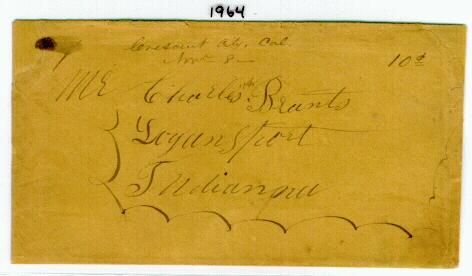 1964
Crescent City. Cal.
Nov 8
10¢
Mr Charles Brants
Logansport
Indianna